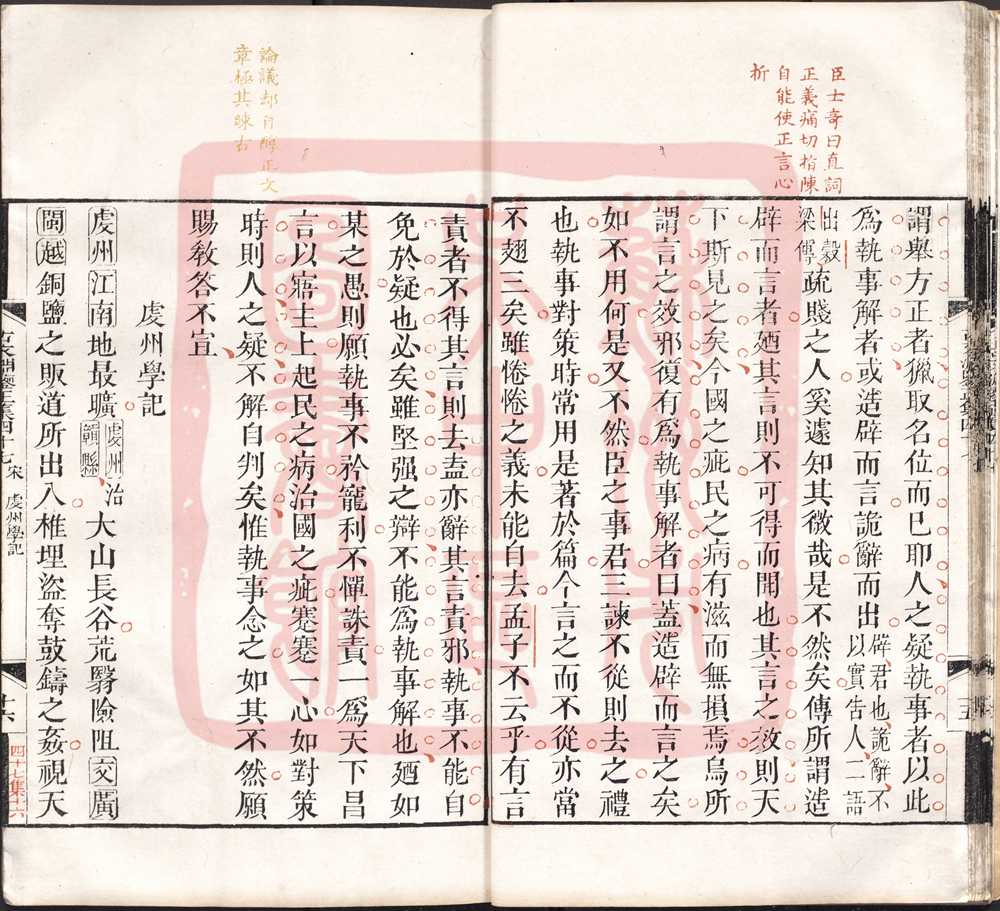 臣士奇曰直詞
正義痛切指陳
自能使正言心
折
謂舉方正者獵取名位而已耶人之疑執事者以此
為執事解者或造辟而言詭辭而出辟君也詭辭不以實告人二語
出穀梁傳疏賤之人奚遽知其微哉是不然矣傳所謂造
辟而言者廼其言則不可得而聞也其言之效則天
下斯見之矣今國之疵民之病有滋而無損焉烏所
謂言之效邪復有為執事解者曰蓋造辟而言之矣
如不用何是又不然臣之事君三諫不從則去之禮
也執事對策時常用是著於篇今言之而不從亦當
不翅三矣雖惓惓之義未能自去孟子不云乎有言
論議却自醇正文
章極其疎古
責者不得其言則去盍亦辭其言責邪執事不能自
免於疑也必矣雖堅强之辯不能為執事解也廼如
某之愚則願執事不矜寵利不憚誅責一為天下昌
言以寤主上起民之病治國之疵蹇蹇一心如對策
時則人之疑不解自判矣惟執事念之如其不然願
賜教答不宣
虔州學記
虔州江南地最曠虔州治贛縣大山長谷荒翳險阻交廣
閩越銅鹽之販道所出入椎埋盜奪鼓鑄之姦視天
宋 虔州學記
四十七集十六